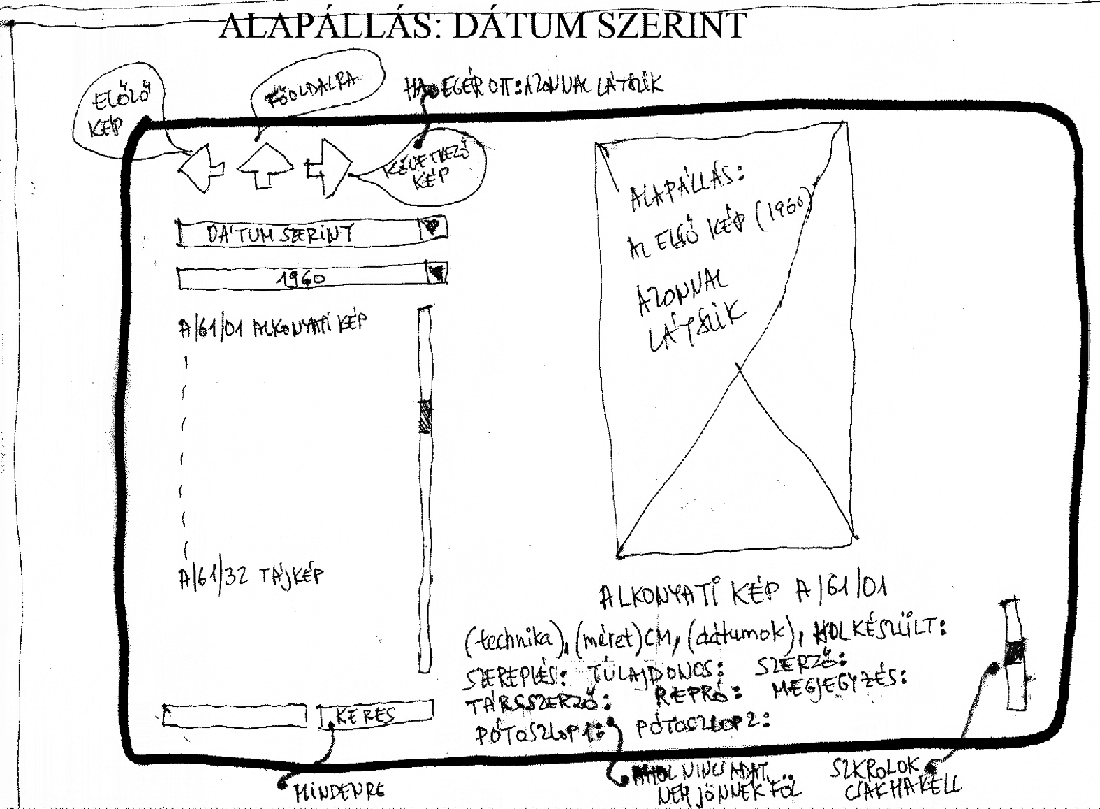 ALAPÁLLÁS: DÁTUM SZERINT
ELŐZŐ
KÉP
FŐOLDALRA
HA EGÉR OTT: AZONNAL LÁTSZIK
KÖVETKEZŐ
KÉP
DÁTUM SZERINT
1960
A/61/01 ALKONYATI KÉP
A/61/32 TÁJKÉP
KERES
MINDENRE
ALAPÁLLÁS:
AZ ELSŐ KÉP (1960)
AZONNAL
LÁTSZIK
ALKONYATI KÉP A/61/01
(technika), (méret)CM, (dátumok), HOL KÉSZÜLT:
SZEREPLÉS: TULAJDONOS: SZERZŐ:
TÁRSSZERZŐ: REPRÓ: MEGJEGYZÉS:
PÓTOSZLOP1: PÓTOSZLOP2:
AHOL NINCS ADAT,
NEM JÖNNEK FÖL
SZKROLOK
CSAK HA KELL